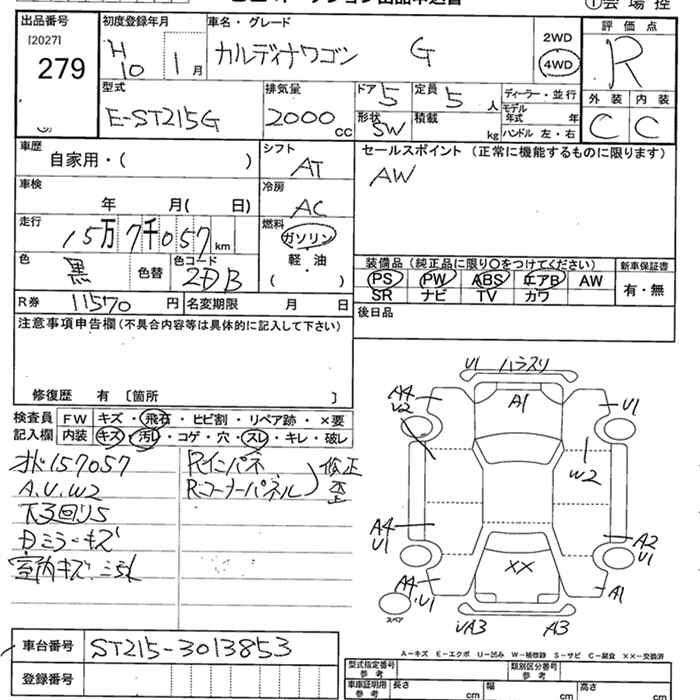 ①会場控
出品番号
[2027]
279
初度登録年月
H 10 1月
車名・グレード
カルディナワゴン G
2WD
4WD
評価点
R
外装 内装
C C
型式
E-ST215G
排気量
2000 cc
ドア 5
定員 5 人
形状 SW
積載 kg
ディーラー・並行
モデル年式 年
ハンドル 左・右
車歴
自家用・( )
シフト
AT
セールスポイント(正常に機能するものに限ります)
AW
車検
年 月( 日)
冷房
AC
走行
15万7千057km
燃料
ガソリン
軽・油
( )
色
黒 色替
色コード
2DB
装備品(純正品に限り○をつけてください)
新車保証書
PS PW ABS エアB AW
SR ナビ TV カワ
有・無
R券 11570円
名変期限 月 日
後日品
注意事項申告欄(不具合内容等は具体的に記入して下さい)
修復歴 有 〔箇所 〕
検査員記入欄
FW キズ・飛石・ヒビ割・リペア跡・×要
内装 キズ・汚レ・コゲ・穴・スレ・キレ・破レ
オド157057
A.U.W2
下回りS
ミラーキズ
室内キズ
Rインパネ
Rコーナーパネル
修正
歪
U1 ハラスリ
A4
U2
A1
U1
W2
A4
U1
A2
U1
A4.U1
XX
A1
スペア
UA3 A3
A-キズ E-エクボ U-凹み W-補修跡 S-サビ C-腐食 XX-交換済
車台番号 ST215-3013853
登録番号
型式指定番号
参考
類別区分番号
参考
車庫証明用
参考
長さ cm
幅 cm
高さ cm